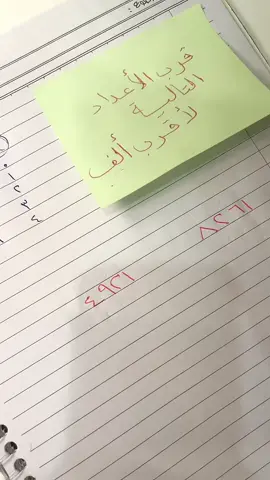 قرب الأعداد
التالية
لأقرب ألف
٤٩٢١
١
٢
٣
٤